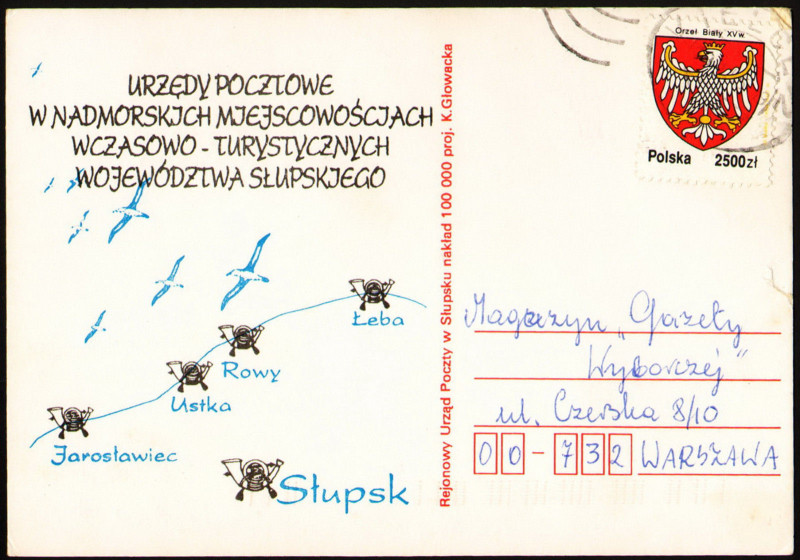 URZĘDY POCZTOWE
W NADMORSKICH MIEJSCOWOŚCIACH
WCZASOWO - TURYSTYCZNYCH
WOJEWÓDZTWA SŁUPSKIEGO
Łeba
Rowy
Ustka
Jarosławiec
Słupsk
Rejonowy Urząd Poczty w Słupsku nakład 100 000 proj. K.Głowacka
Orzeł Biały XVw.
Polska 2500zł
Magazyn „Gazety
Wyborczej"
ul. Czerska 8/10
00-732 WARSZAWA